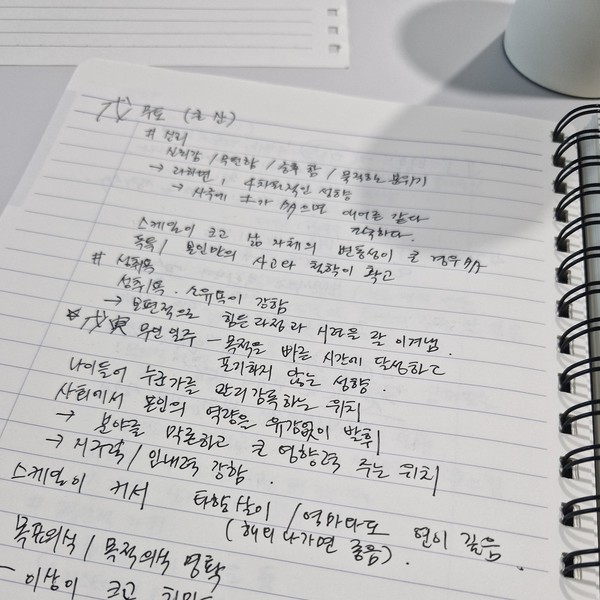 戊 무토 (큰 산)
# 심리
신뢰감 / 무던함 / 중후함 / 묵직하는 분위기
→ 과하면, 수회적인 성향
→ 사주에 土가 多으면 대어른 같다
스케일이 크고 삶 자체의 변동성이 큰 경우 多
독특 / 본인만의 사고나 철학이 확고
# 성취욕
성취욕, 소유욕이 강함
→ 보편적으로 힘든 과정과 시련을 잘 이겨냄.
☆ 戊寅 무인일주 - 목적을 빠른 시간에 달성하고
포기하지 않는 성향.
나이들어 누군가를 관리감독하는 위치
사회에서 본인의 역량을 유감없이 발휘
→ 분야를 막론하고 큰 영향력 주는 위치
→ 지구력 / 인내력 강함.
스케일이 커서 타향살이 / 역마다도 연이 깊음.
(해외 나가면 좋음).
목표의식 / 목적의식 명확
- 이상이 크고